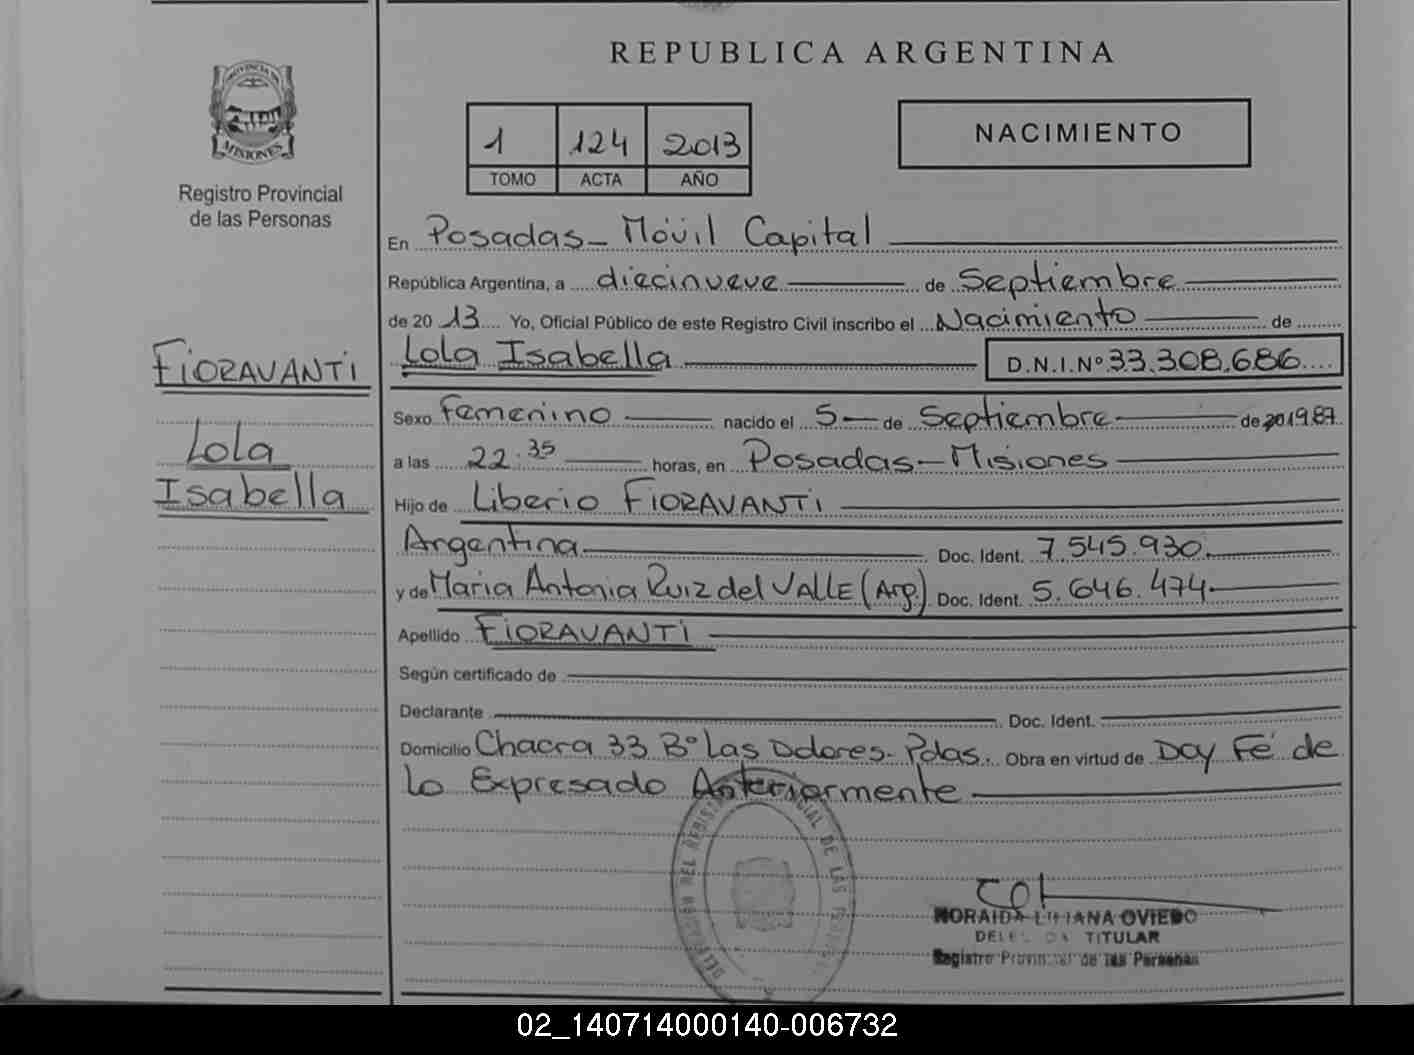 REPUBLICA ARGENTINA
PROVINCIA DE
MISIONES
Registro Provincial
de las Personas
1 124 2013
TOMO ACTA AÑO
NACIMIENTO
En Posadas - Móvil Capital
República Argentina, a diecinueve de Septiembre
de 20 13 Yo, Oficial Público de este Registro Civil inscribo el Nacimiento de
Lola Isabella D.N.I.Nº 33.308.686
FIORAVANTI
Lola
Isabella
Sexo Femenino nacido el 5 de Septiembre de 1987
a las 22:35 horas, en Posadas - Misiones
Hijo de Liberio FIORAVANTI
Argentina Doc. Ident. 7.545.930
y de Maria Antonia Ruiz del VALLE (Arg.) Doc. Ident. 5.646.474
Apellido FIORAVANTI
Según certificado de
Declarante Doc. Ident.
Domicilio Chacra 33 Bº Las Dolores - Pdas. Obra en virtud de Doy Fé de
lo Expresado Anteriormente
DE LAS
LILIANA OVIEDO
TITULAR
Registro Provincial de las Personas
02_140714000140-006732